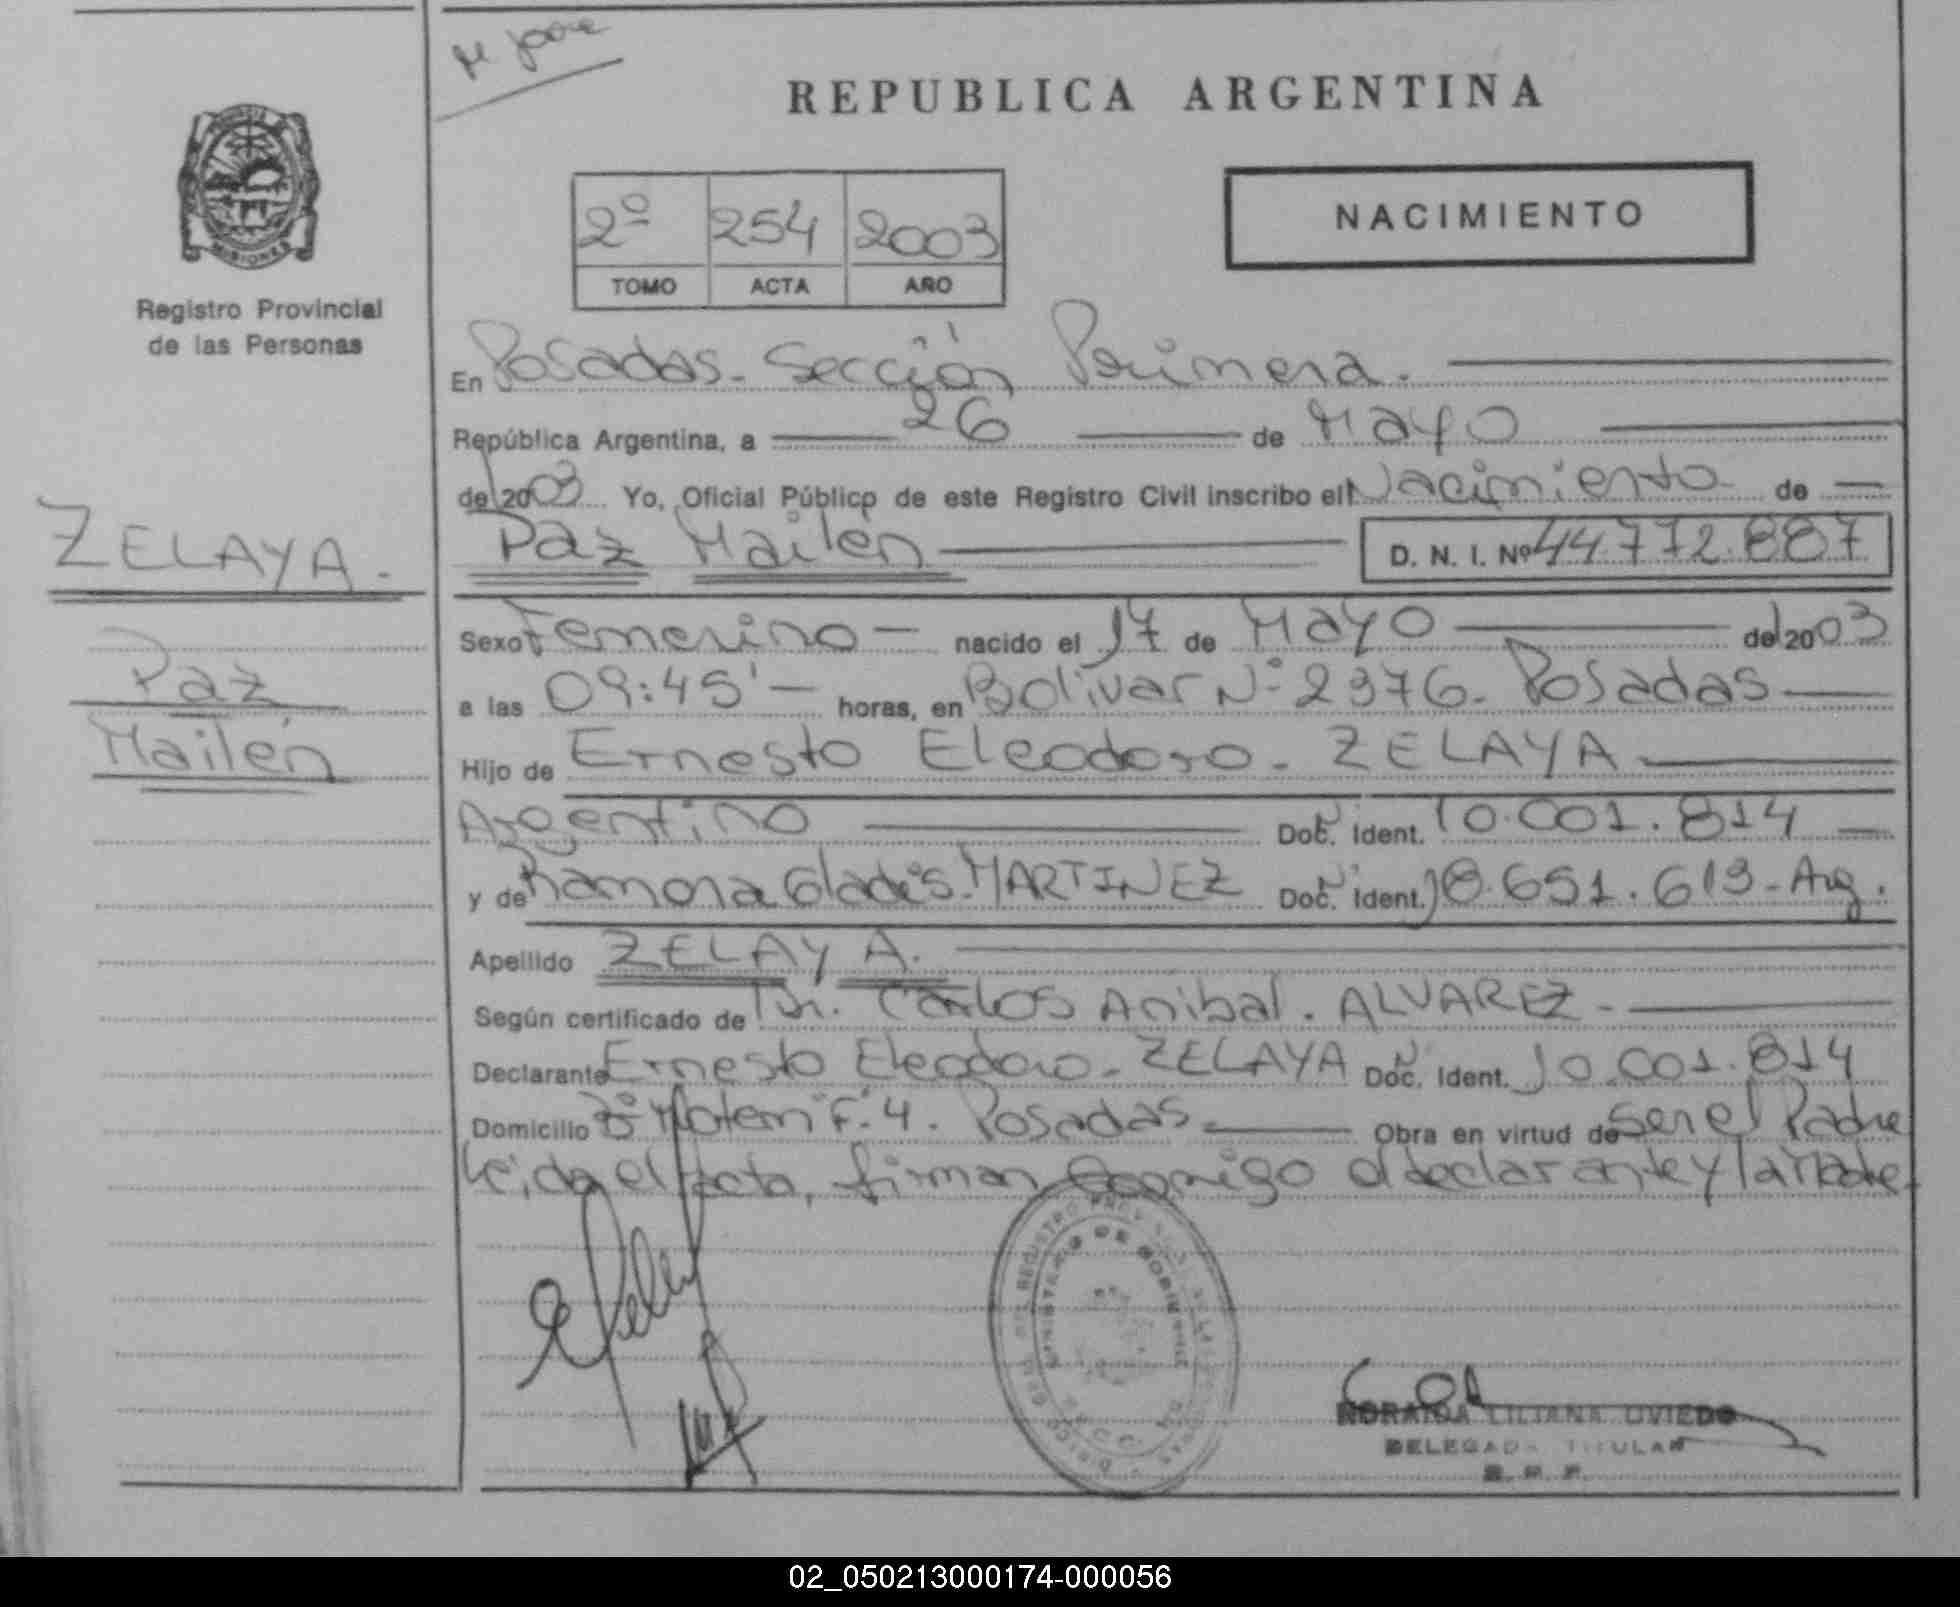 REPUBLICA ARGENTINA
MISIONES
Registro Provincial
de las Personas
2º 254 2003
TOMO ACTA AÑO
NACIMIENTO
En Posadas - Sección Primera.
República Argentina, a 26 de Mayo
del 2003 Yo, Oficial Público de este Registro Civil inscribo el Nacimiento de
Paz Mailén D. N. I. Nº 44.772.887
ZELAYA.
Paz
Mailén
Sexo Femenino nacido el 17 de Mayo del 2003
a las 09:45' horas, en Bolivar Nº 2376. Posadas
Hijo de Ernesto Eleodoro. ZELAYA
Argentino Doc. Ident. 10.001.814
y de Ramona Gladis. MARTINEZ Doc. Ident. 18.651.613 - Arg.
Apellido ZELAYA.
Según certificado de Dr. Carlos Anibal. ALVAREZ.
Declarante Ernesto Eleodoro. ZELAYA Doc. Ident. 10.001.814
Domicilio F. 4. Posadas Obra en virtud de Ser el Padre
leída el acta, firman conmigo el declarante y la Madre.
MINISTERIO DE GOBIERNO
NORAIDA LILIANA OVIEDO
DELEGADA TITULAR
R. P. P.
02_050213000174-000056